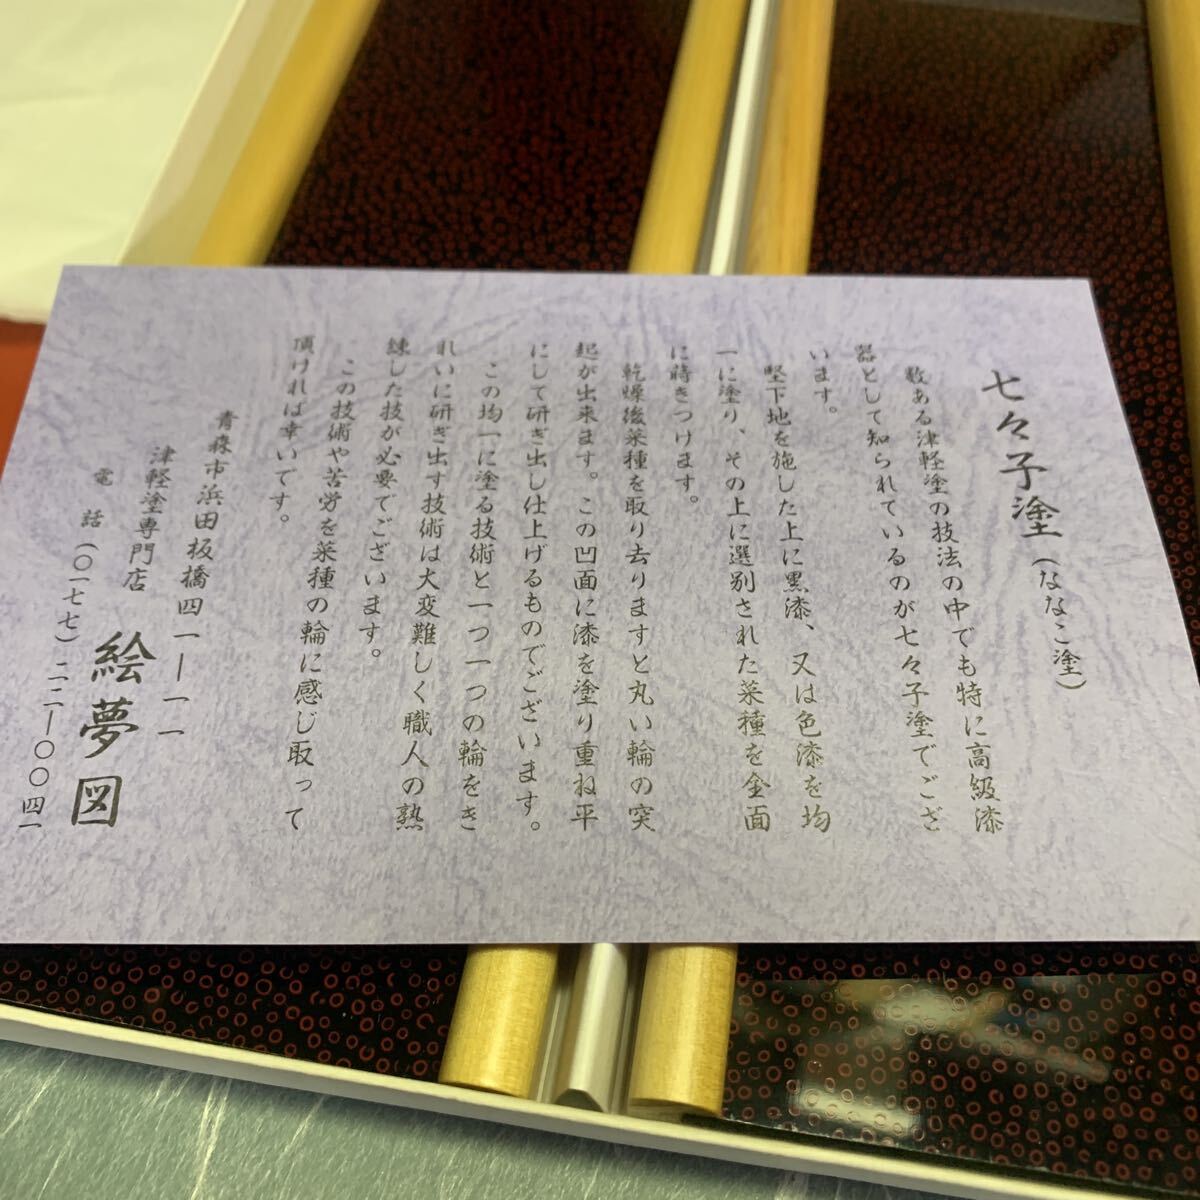 七々子塗(ななこ塗)
数ある津軽塗の技法の中でも特に高級漆
器として知られているのが七々子塗でござ
います。
堅下地を施した上に黒漆、又は色漆を均
一に塗り、その上に選別された菜種を全面
に蒔きつけます。
乾燥後菜種を取り去りますと丸い輪の突
起が出来ます。この凹面に漆を塗り重ね平
にして研ぎ出し仕上げるものでございます。
この均一に塗る技術と一つ一つの輪をき
れいに研ぎ出す技術は大変難しく職人の熟
練した技が必要でございます。
この技術や苦労を菜種の輪に感じ取って
頂ければ幸いです。
青森市浜田板橋四一―一一
津軽塗専門店 絵夢図
電 話(〇一七七)二二―〇〇四一